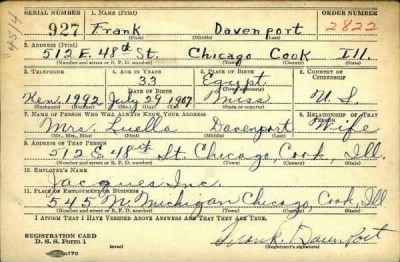 SERIAL NUMBER 1. NAME (Print) ORDER NUMBER
927 Frank Davenport 2822
(First) (Middle) (Last)
2. ADDRESS (Print)
512 E. 48th St. Chicago Cook Ill.
(Number and street or R. F. D. number) (Town) (County) (State)
3. TELEPHONE 4. AGE IN YEARS 5. PLACE OF BIRTH 6. COUNTRY OF CITIZENSHIP
33 Egypt
DATE OF BIRTH
Ken. 1992 July 29 1907 Miss U. S.
7. NAME OF PERSON WHO WILL ALWAYS KNOW YOUR ADDRESS 8. RELATIONSHIP OF THAT PERSON
Mrs. Luella Davenport Wife
(Mr., Mrs., Miss) (First) (Middle) (Last)
9. ADDRESS OF THAT PERSON
512 E. 48th St. Chicago, Cook, Ill.
(Number and street or R. F. D. number) (Town) (County) (State)
10. EMPLOYER'S NAME
Jacques Inc.
11. PLACE OF EMPLOYMENT OR BUSINESS
545 N. Michigan Chicago, Cook, Ill
(Number and street or R. F. D. number) (Town) (County) (State)
I AFFIRM THAT I HAVE VERIFIED ABOVE ANSWERS AND THAT THEY ARE TRUE.
REGISTRATION CARD
D. S. S. Form 1 (over) Frank Davenport
(Registrant's signature)